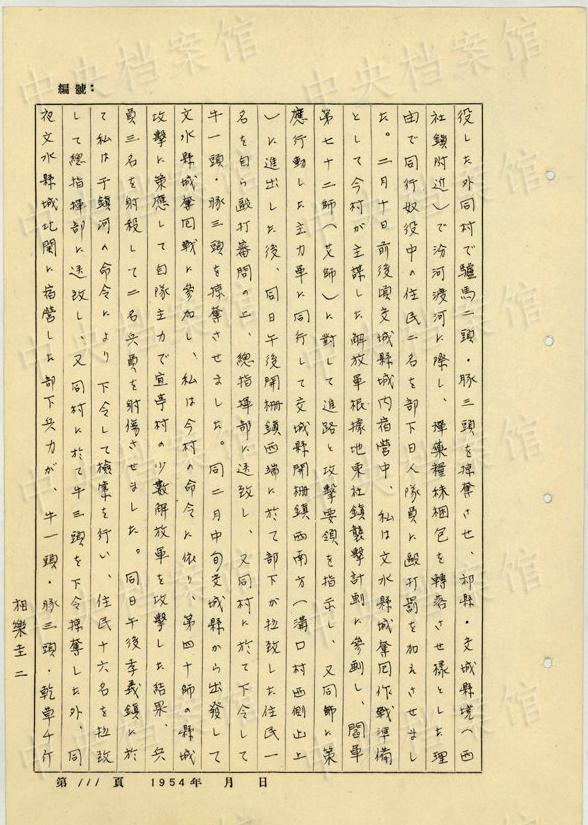 編號：
役した外同村で驢馬二頭・豚三頭を掠奪させ、祁縣・文城縣境（西
社鎮附近）で汾河渡河に際し、弾薬糧秣梱包を轉落させ様とした理
由で同行奴役中の住民二名を部下日人隊員に毆打罰を加えさせまし
た。二月十日前後頃文城縣城内宿營中、私は文水縣城奪回作戰準備
として今村が主謀した解放軍根據地東社鎮襲擊計劃に參劃し、閻軍
第七十二師（艾師）に對して進路と攻擊要領を指示し、又同師に策
應行動した主力軍に同行して交城縣開柵鎮西南方（溝口村西側山上
）に進出した後、同日午後開柵鎮西端に於て部下が拉致した住民一
名を自ら毆打審問の上、總指揮部に送致し、又同村に於て下令して
牛一頭・豚三頭を掠奪させました。同二月中旬交城縣から出發して
文水縣城奪回戰に參加し、私は今村の命令に依り、第四十師の縣城
攻擊に策應して自隊主力で宜亭村の少數解放軍を攻擊した結果、兵
員三名を射殺して二名兵員を射傷させました。同日午後孝義鎮に於
て私は于鎮河の命令により下令して檢索を行い、住民十六名を拉致
して總指揮部に送致し、又同村に於て牛三頭を下令掠奪した外、同
夜文水縣城北關に宿營した部下兵力が、牛一頭・豚三頭・乾草4斤
相樂圭二
第 111 頁 1954年 月 日
中央档案馆